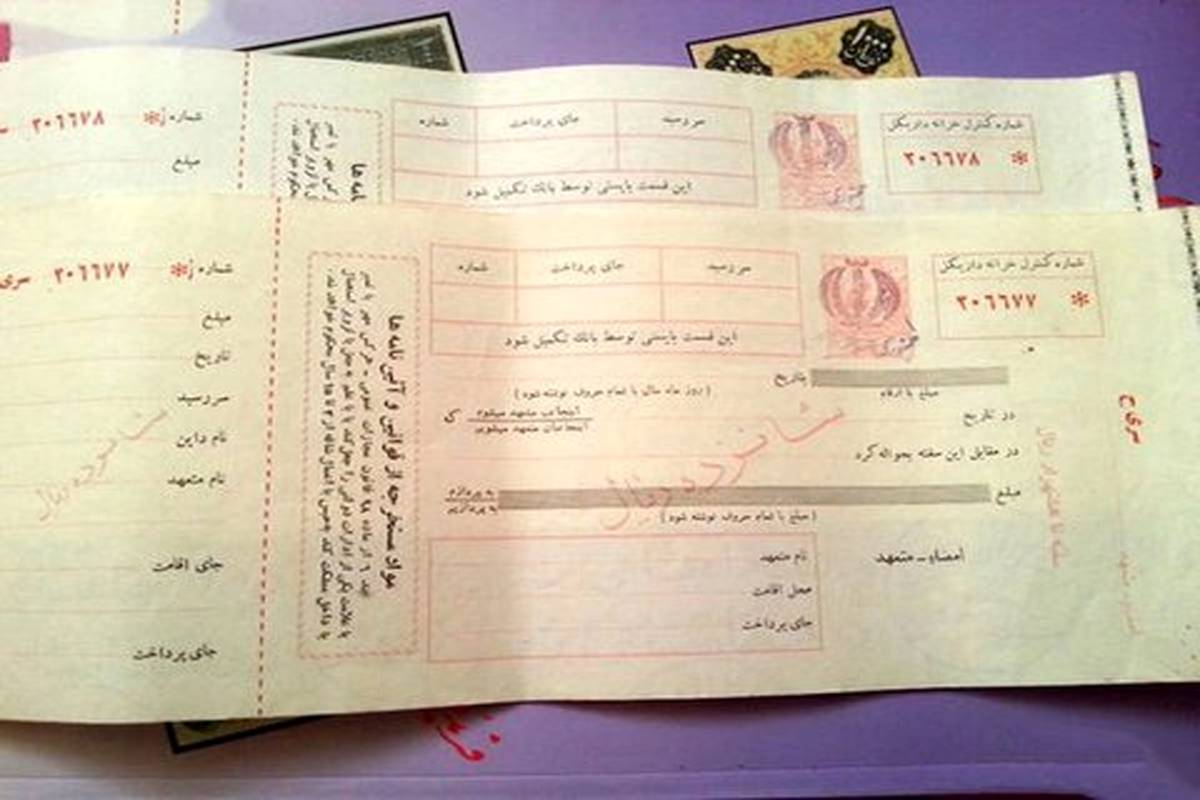 ۱۰۰۰
شماره کنترل خزانه داری کل
* ۳۰۶۶۷۸
سررسید
جای پرداخت
شماره
این قسمت بایستی توسط بانک تکمیل شود
شماره
* ۳۰۶۶۷۸
مبلغ
شماره کنترل خزانه داری کل
* ۳۰۶۶۷۷
سررسید
جای پرداخت
شماره
این قسمت بایستی توسط بانک تکمیل شود
بتاریخ
مبلغ با ارقام
( روز ماه سال با تمام حروف نوشته شود )
در تاریخ
اینجانب متعهد میشوم
اینجانبان متعهد میشویم
که
در مقابل این سفته بحواله کرد
مبلغ
به پردازم
به پردازیم
( مبلغ با تمام حروف نوشته شود )
شانزده ریال
نام متعهد
محل اقامت
جای پرداخت
امضاء ـ متعهد
سری ج
مواد مستخرجه از قوانین و آئین نامه ها
شماره
* ۳۰۶۶۷۷ سری
مبلغ
تاریخ
سررسید
نام داین
نام متعهد
شانزده ریال
جای اقامت
جای پرداخت